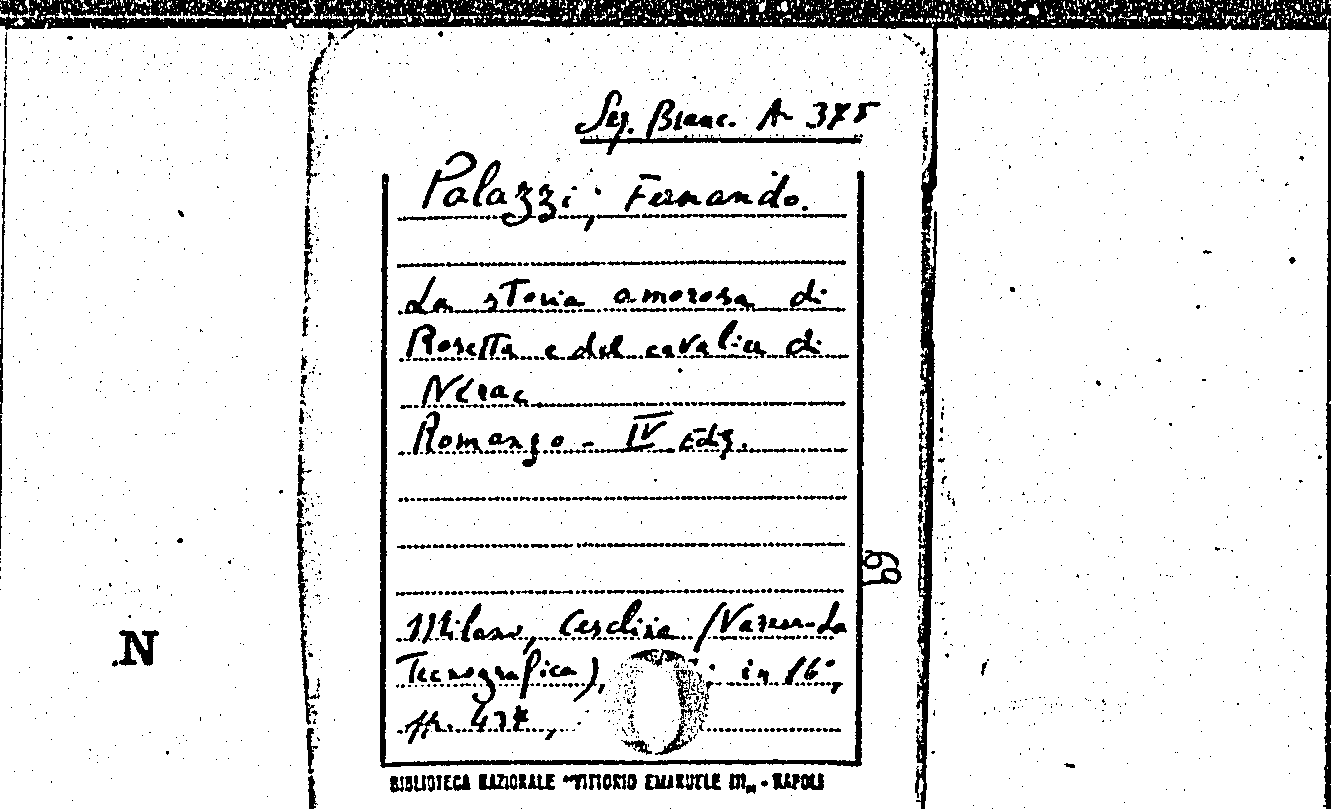 Seg. Branc. A 375
Palazzi, Fernando.
La storia amorosa di
Rosetta e del cavalier di
Nérac
Romanzo - IV Edz.
69
Milano, Ceschina (Varese-La
N
Tecnografica), in 16°,
pp. 437,
BIBLIOTECA NAZIONALE "VITTORIO EMANUELE III" - NAPOLI